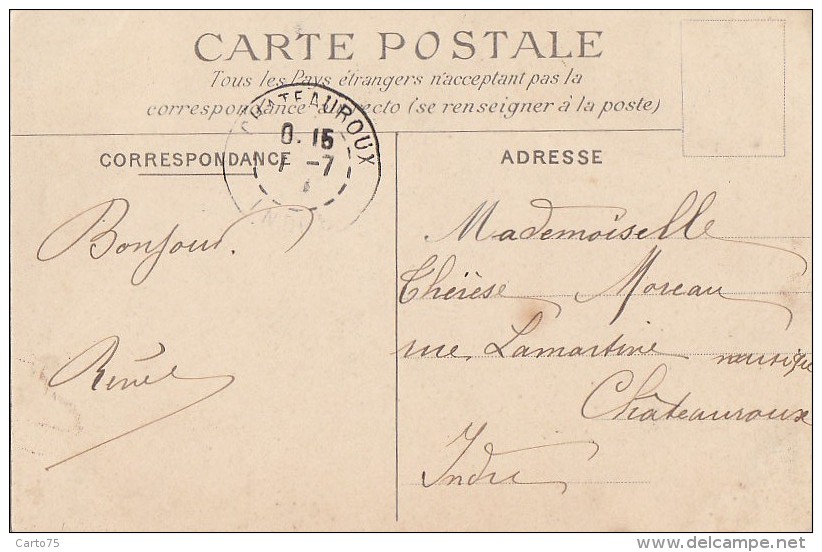 CARTE POSTALE
Tous les Pays étrangers n'acceptant pas la
correspondance au recto (se renseigner à la poste)
CHATEAUROUX
0.15
1 -7
CORRESPONDANCE
ADRESSE
Bonjour.
Renée
Mademoiselle
Thérèse Moreau
rue Lamartine musique
Châteauroux
Indre
Carto75
www.delcampe.net